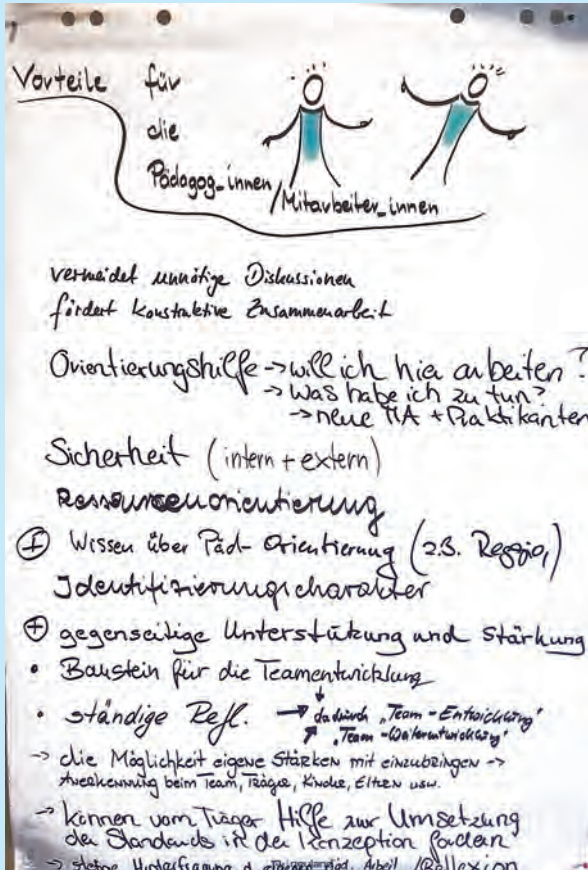 Vorteile für
die
Pädagog_innen
/Mitarbeiter_innen
vermeidet unnötige Diskussionen
fördert konstruktive Zusammenarbeit
Orientierungshilfe -> will ich hier arbeiten?
-> Was habe ich zu tun?
-> neue MA + Praktikanten
Sicherheit (intern + extern)
Ressourcenorientierung
+ Wissen über Päd- Orientierung (z.B. Reggio,)
Identifizierungscharakter
+ gegenseitige Unterstützung und Stärkung
• Baustein für die Teamentwicklung
• ständige Refl. -> dadurch „Team-Entwicklung"
„Team-Weiterentwicklung"
-> die Möglichkeit eigene Stärken mit einzubringen ->
Anerkennung beim Team, Träger, Kinder, Eltern usw.
-> können vom Träger Hilfe zur Umsetzung
der Standards in der Konzeption fordern
-> stetige Hinterfragung d. päd. Arbeit /Reflexion